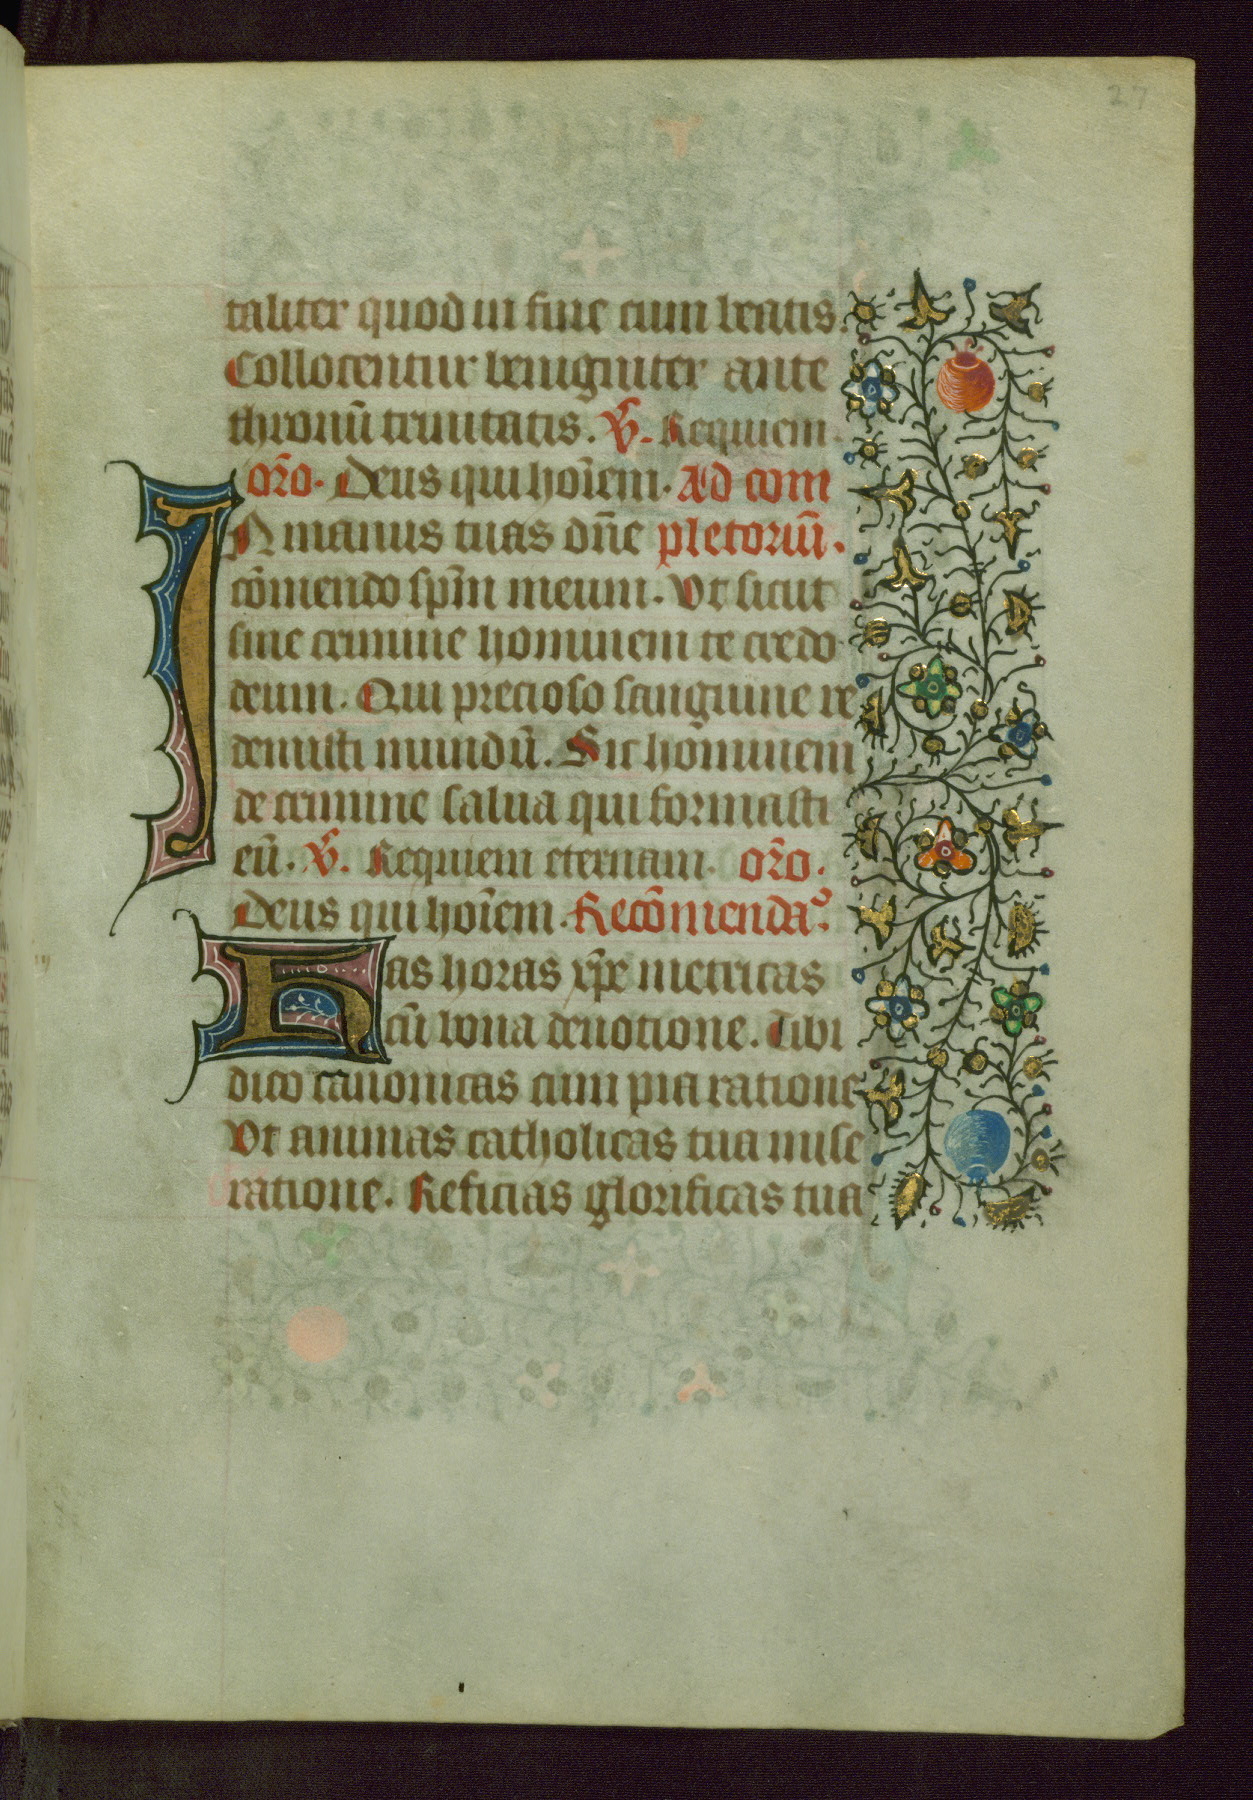 27
taliter quod in fine cum beatis.
Collocentur benigniter ante
thronū trinitatis. V̄. Requiem.
or̄o. Deus qui hoīem. Ad com
IN manus tuas dn̄e pletoriū.
cōmendo sp̄m meum. Ut sicut
sine crimine hominem te credo
deum. Qui precioso sanguine re
demisti mundū. Sic hominem
de crimine salua qui formasti
eū. V̄. Requiem eternam. or̄o.
Deus qui hoīem. Recōmenda⁹.
Has horas xp̄e metricas
cū bona deuotione. Tibi
dico canonicas cum pia ratione
Ut animas catholicas tua mise
ratione. Reficias glorificas tua